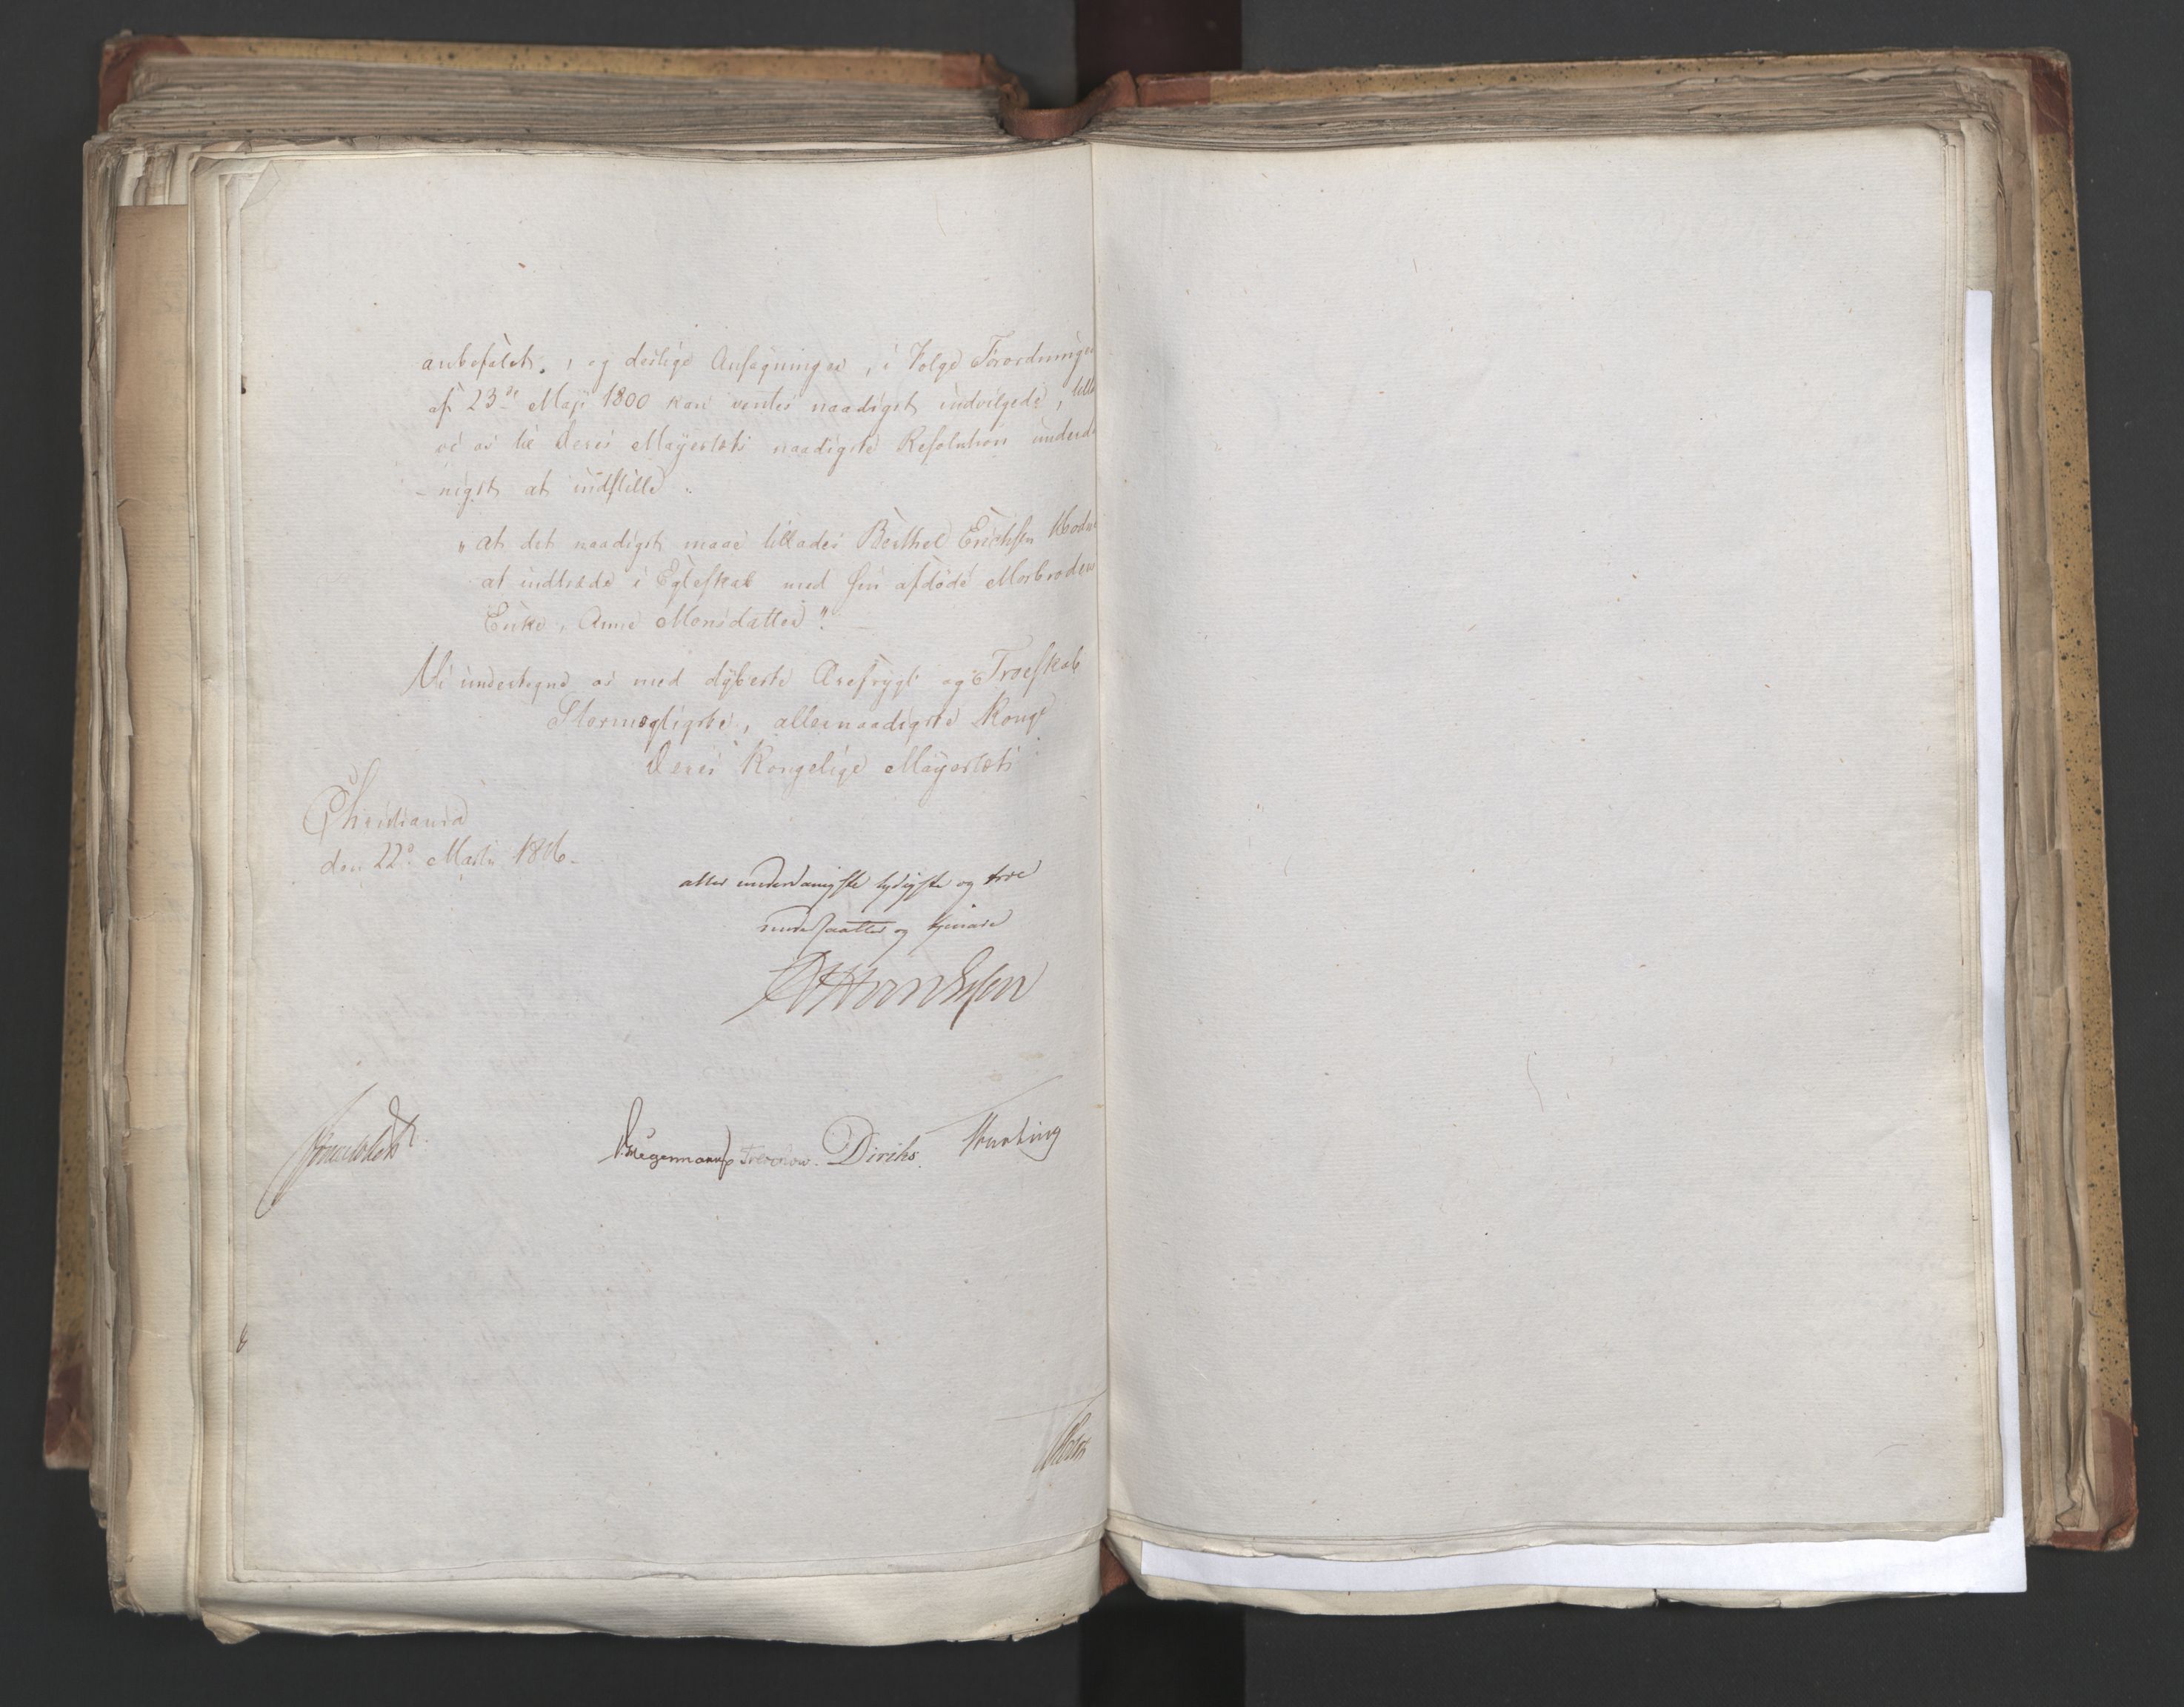 anbefalet, og deslige Ansøgninger, i Følge Forordningen
af 23de Maji 1800 kan ventes naadigst indvilgede,
vi os til Deres Mayestæts naadigste Resolution underda
-nigst at indstille:
"at det naadigst maae tillades Berthel Erichsen
at indtræde i Egteskab med sin afdøde Morbroders
Enke, Anne Monsdatter".
Vi undertegne os med dybeste Ærefrygt og Troeskab
Stormægtigste, allernaadigste Konge
Deres Kongelige Mayestæts
Christiania
den 22de Martii 1816.
aller underdanigste lydigste og troe
undersaatter og tjenere
Hegermann Treschow. Diriks. Motzfeldt